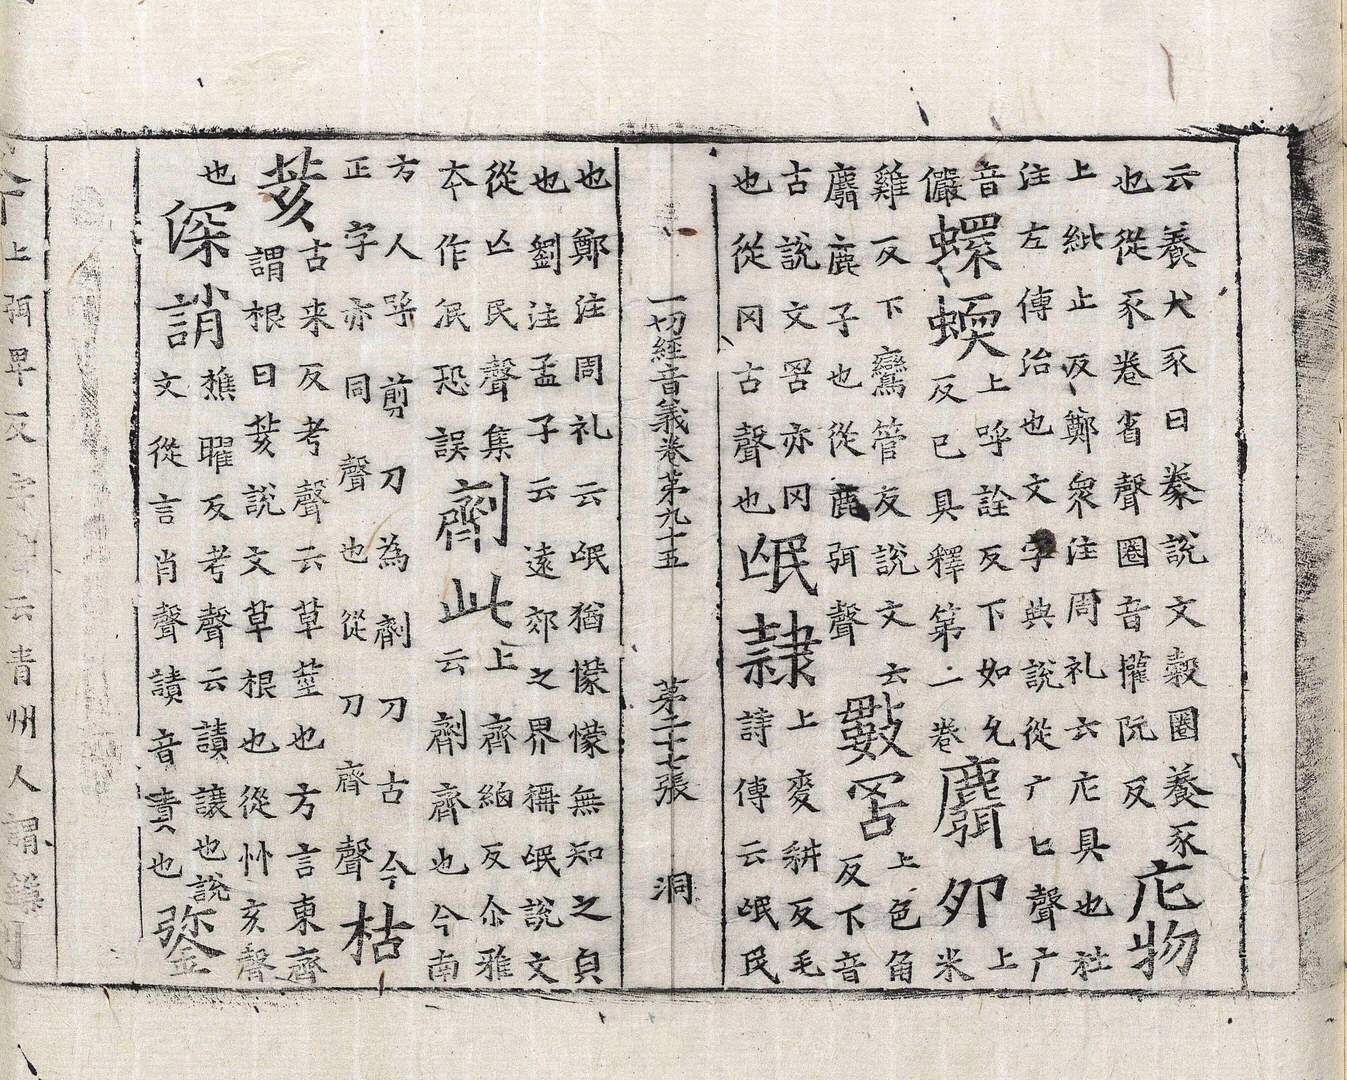 云養犬豕曰豢説文穀圈養豕
也從豕卷省聲圈音權阮反
庀物
上紕止反鄭衆注周礼云庀具也社
注左傳治也文字典說從广匕聲广
音
儼
螺蝡
上呼詮反下如允
反已具釋第二卷
麛夘
上
米
雞反下鸞管反説文云
麛鹿子也從鹿弭聲
數罟
上色角
反下音
古説文罟亦冈
也從冈古聲也
氓隷
上麥耕反毛
詩傳云氓民
一切經音義卷第九十五 第二十七張 洞
也鄭注周礼云氓猶懞懞無知之皃
也劉注孟子云遠郊之界稱氓説文
從亾民聲集
本作泯恐誤
劑此
上齊紿反尒雅
云劑齊也今南
方人呼剪刀為劑刀古今
正字亦同聲也從刀齊聲
枯
荄
古来反考聲云草莖也方言東齊
謂根曰荄説文草根也從艸亥聲
也
深誚
樵曜反考聲云讀讓也説
文從言肖聲讀音責也
上弭卑反云青州人謂